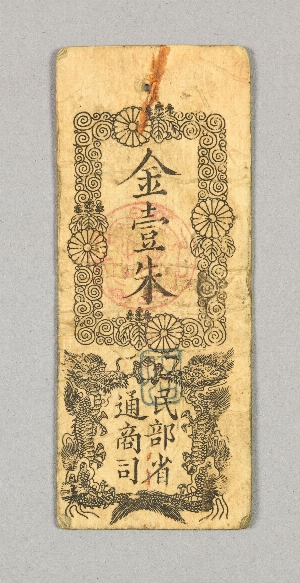 金壹朱
民部省
通商司